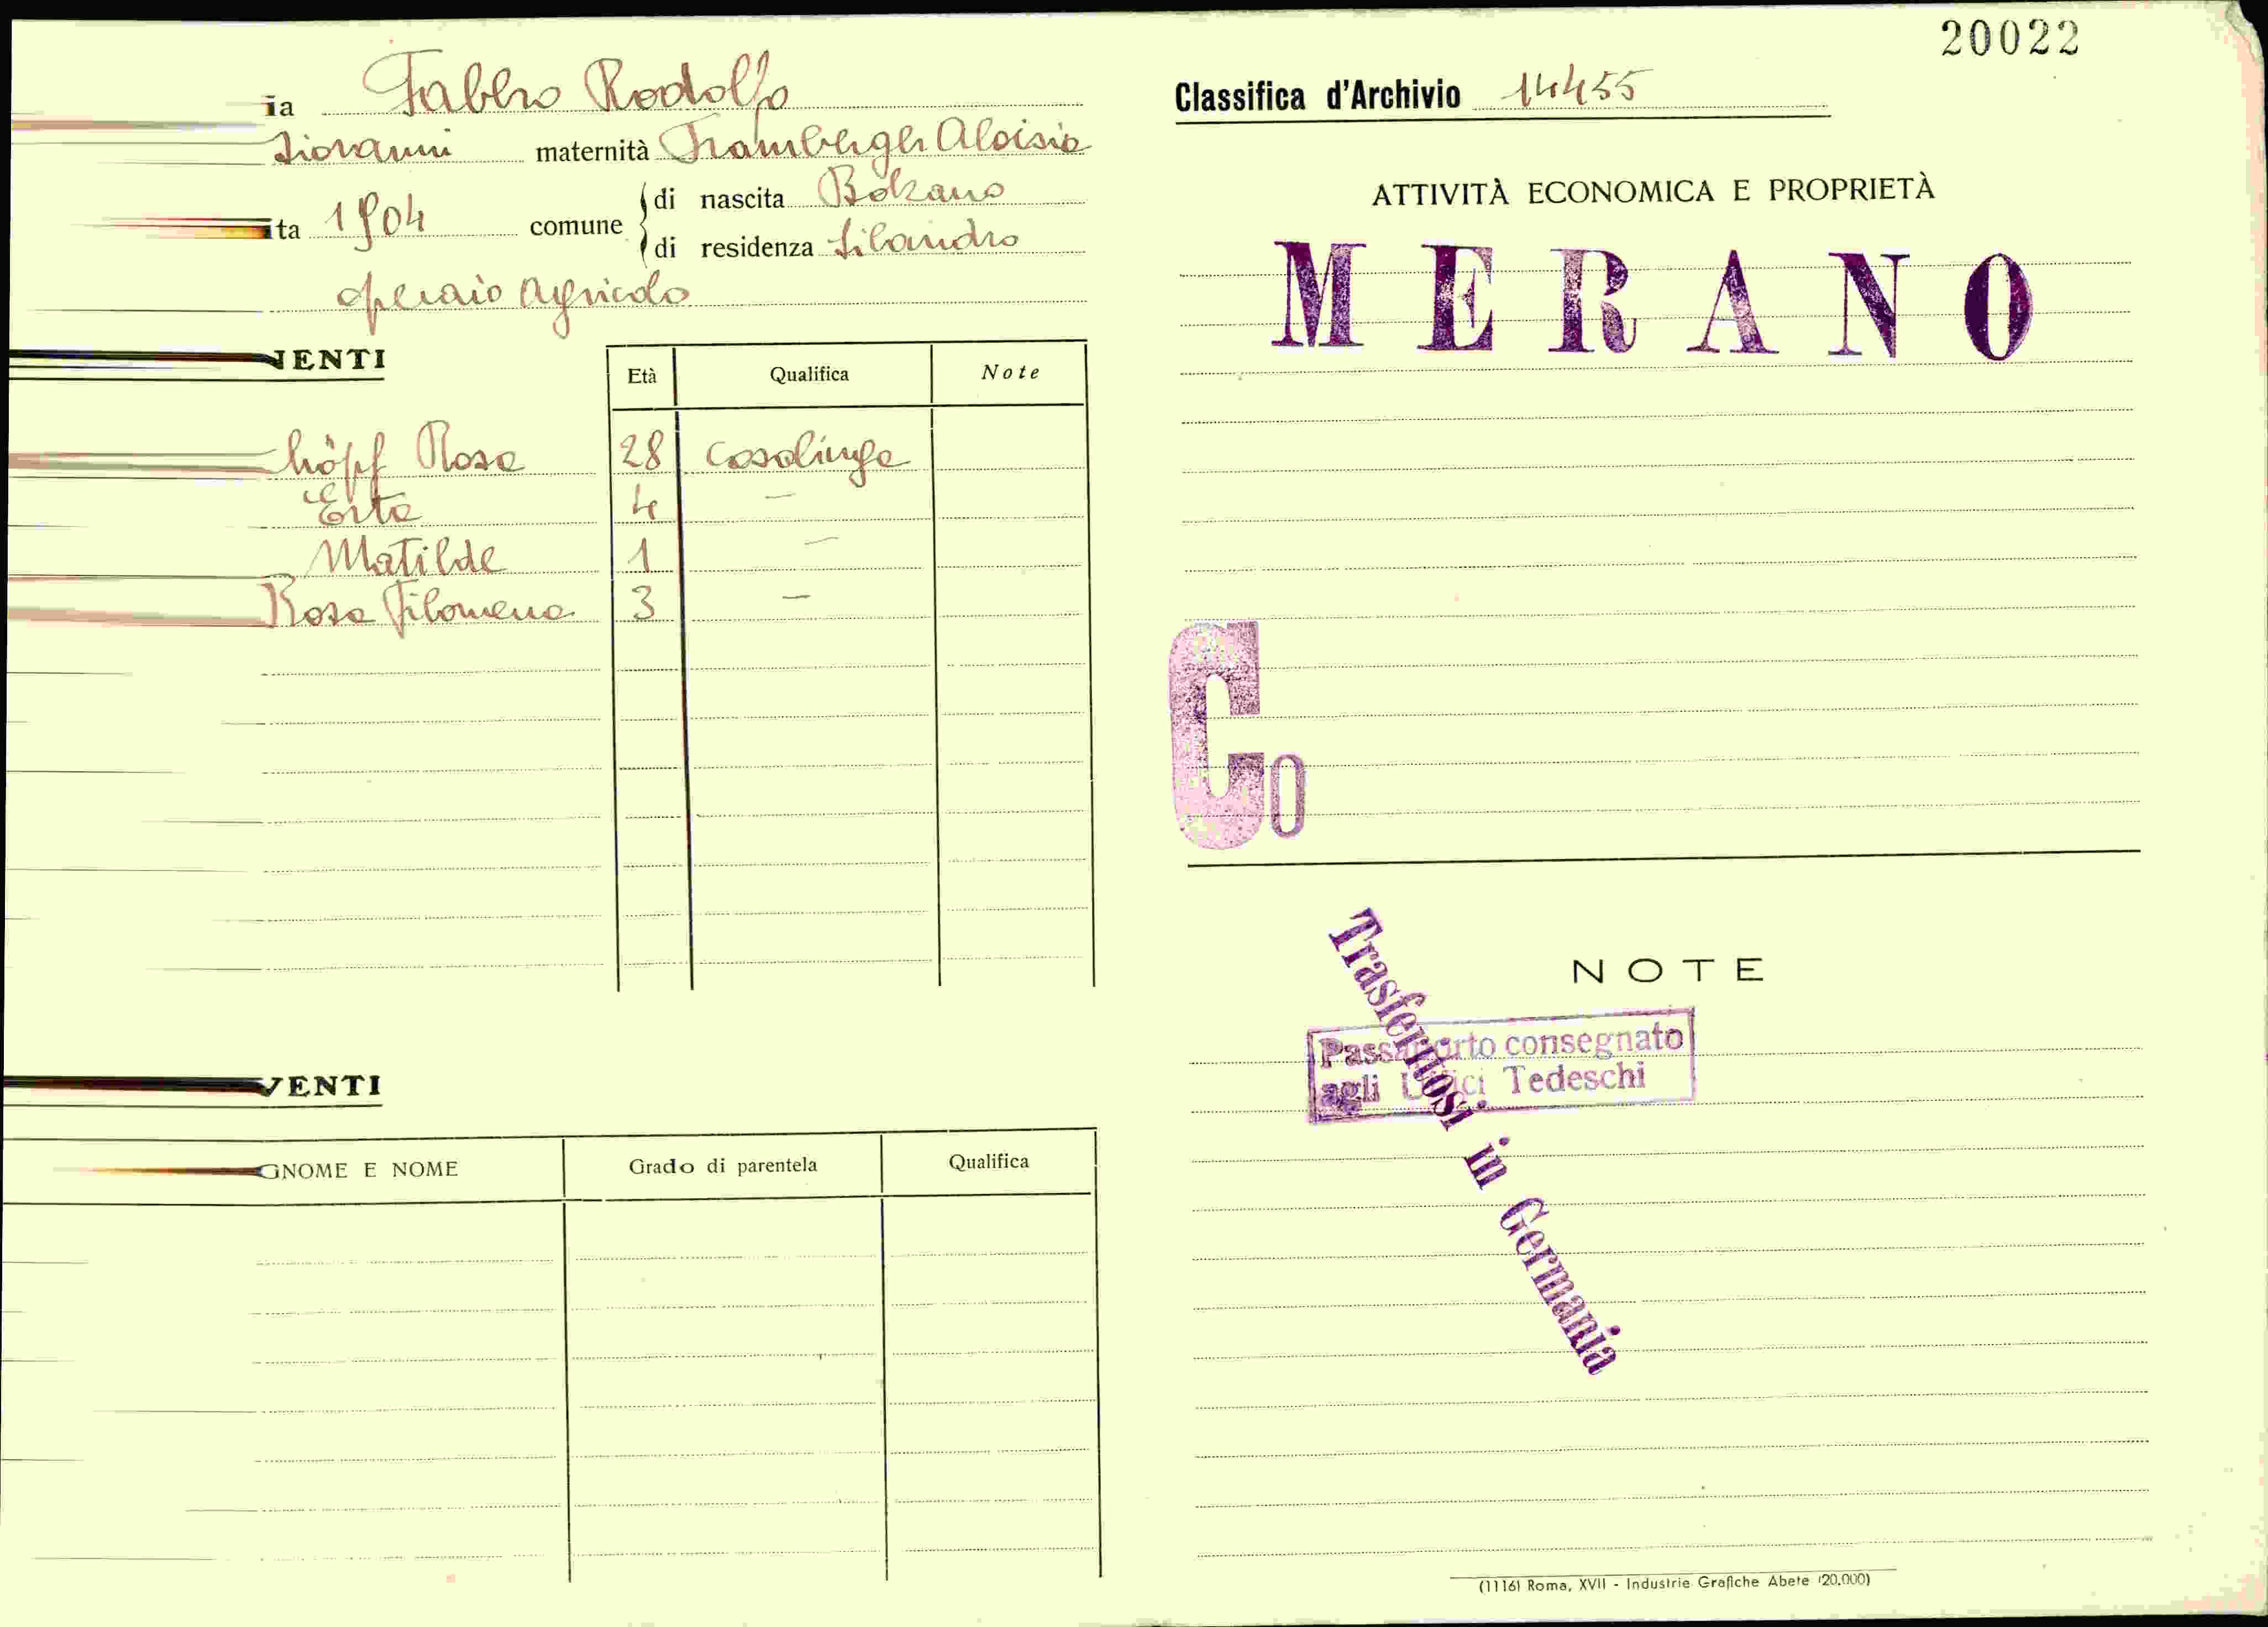 20022
ia Fabbro Rodolfo
Giovanni maternità Aloisia
ita 1904 comune di nascita Bolzano
di residenza Silandro
operaio agricolo
NENTI
Età Qualifica Note
höpf Rosa 28 casalinga
Erta 4 —
Matilde 1 —
Rosa Filomena 3 —
VENTI
GNOME E NOME Grado di parentela Qualifica
Classifica d'Archivio 14455
ATTIVITÀ ECONOMICA E PROPRIETÀ
MERANO
Co
NOTE
Passaporto consegnato
agli Uffici Tedeschi
Trasferitosi in Germania
(1116) Roma, XVII - Industrie Grafiche Abete (20.000)